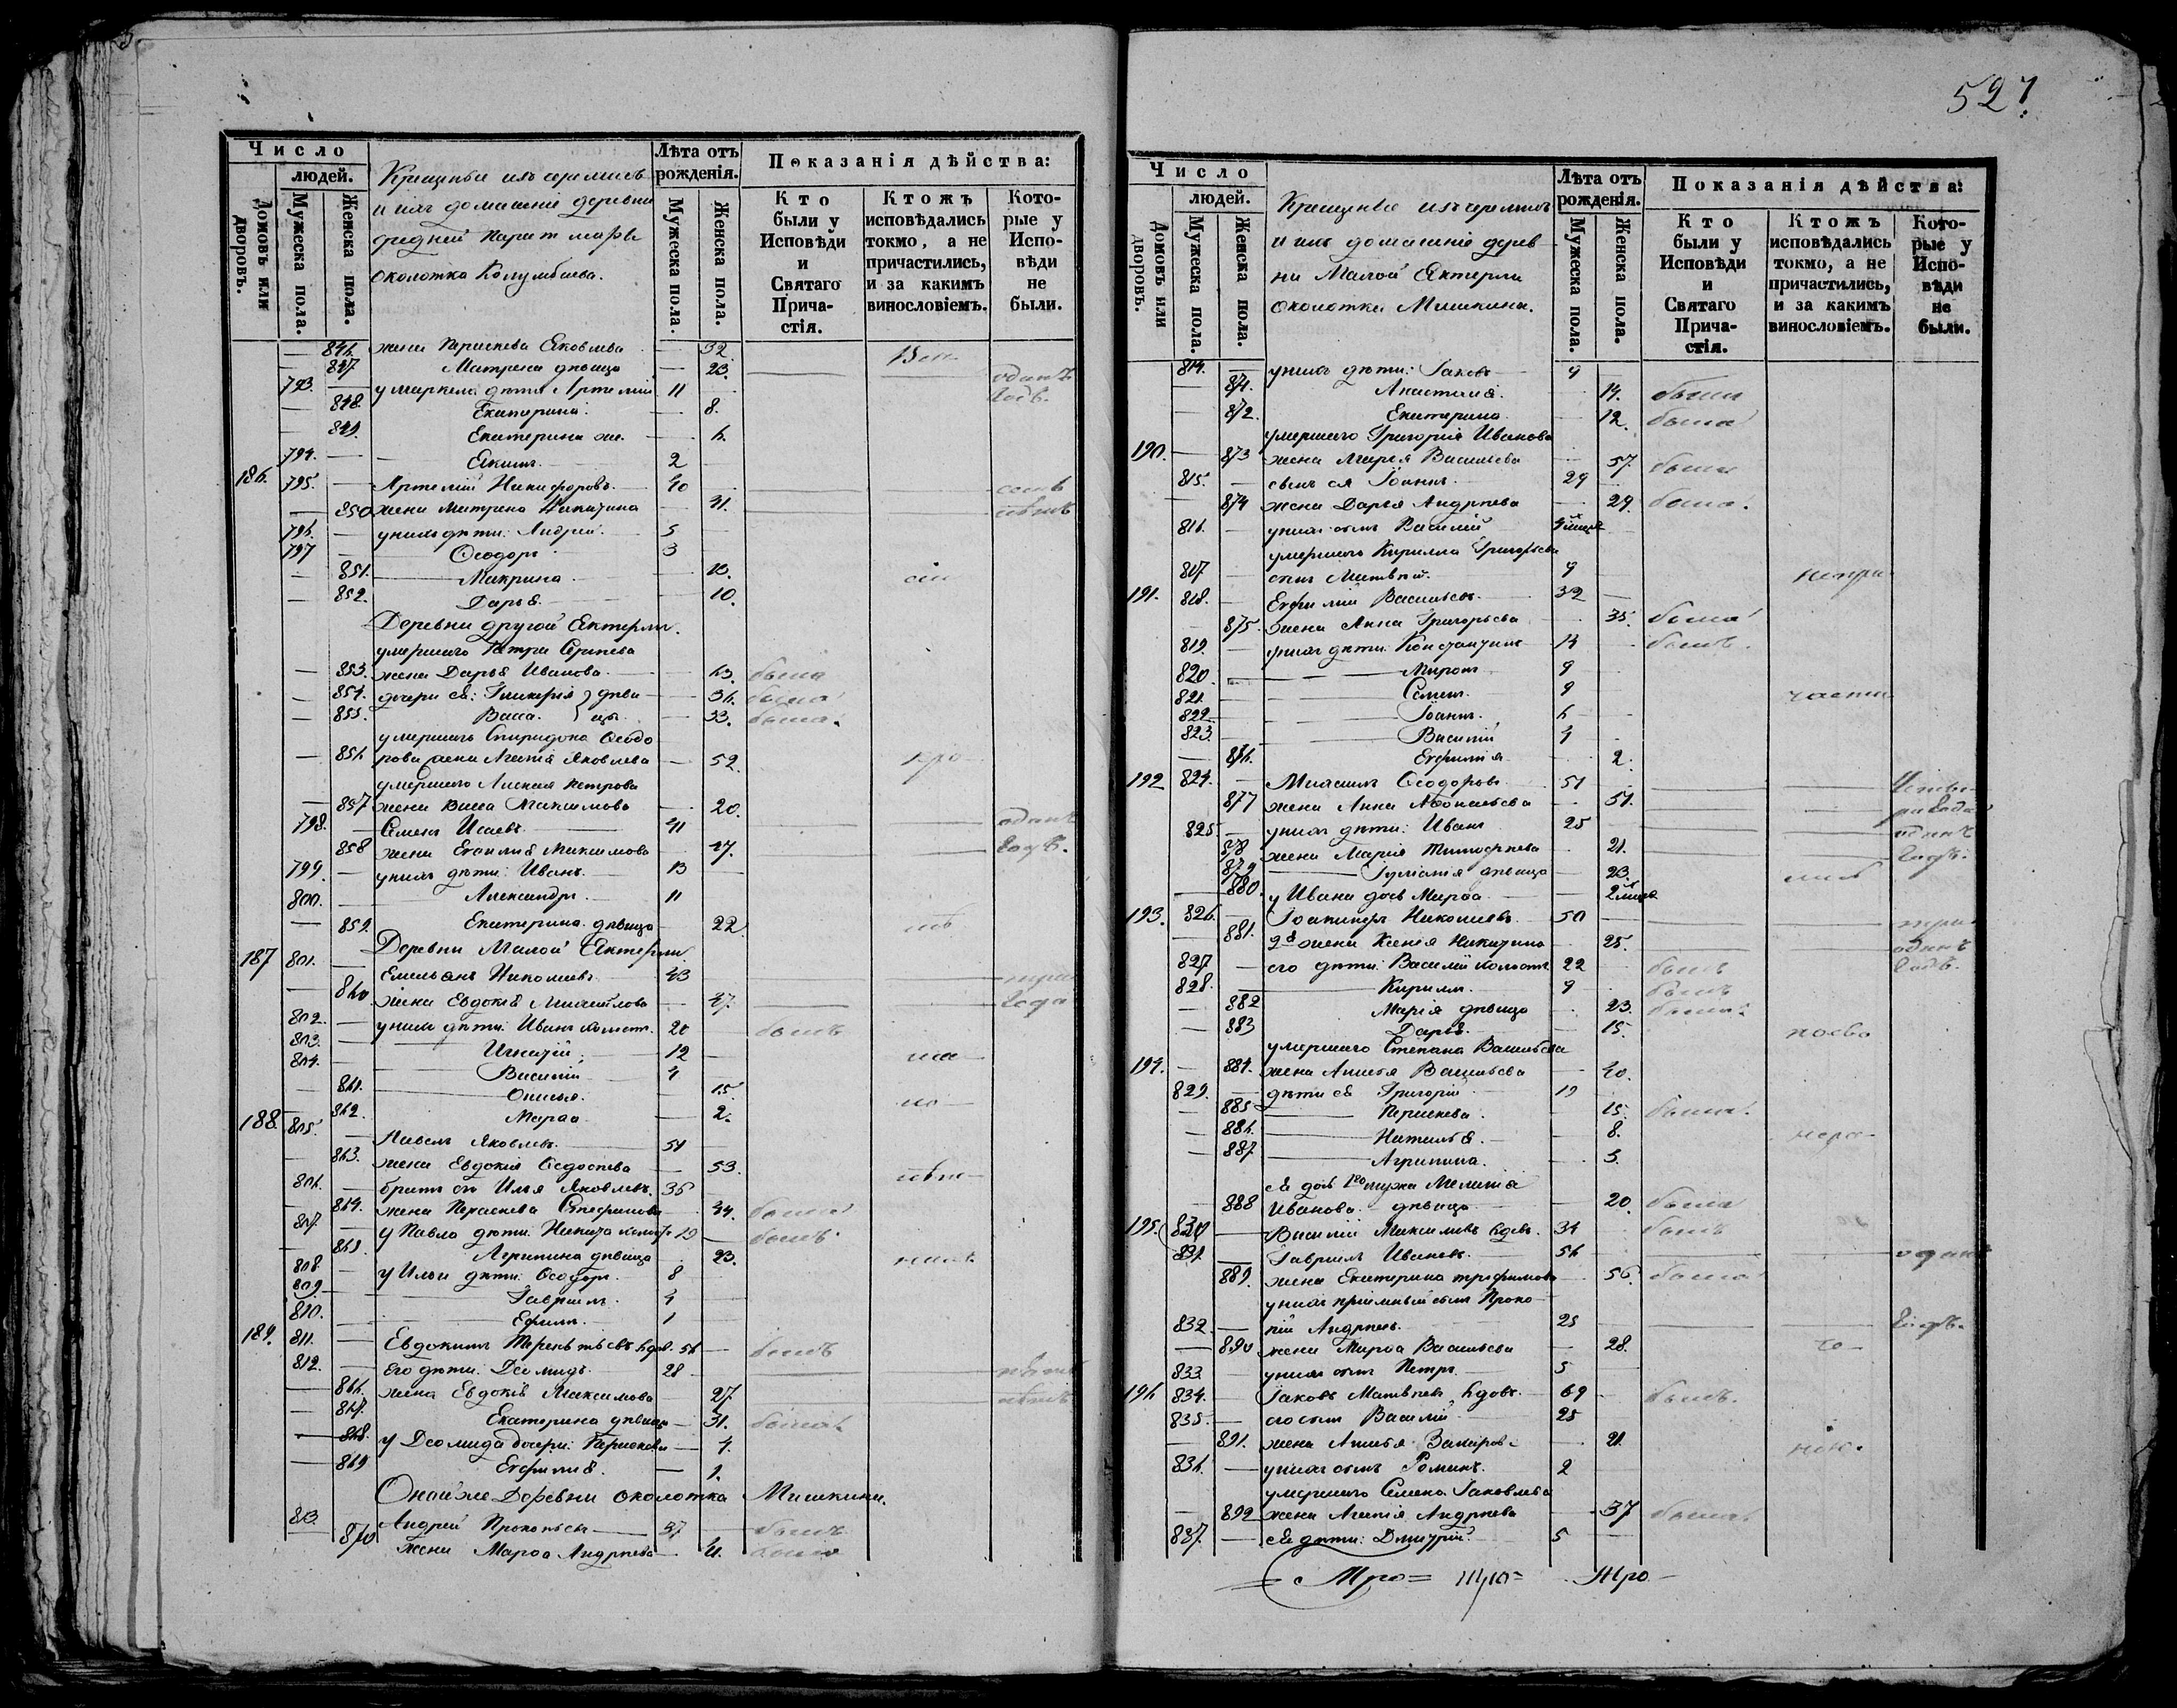 527.
Число
людей.
Домовъ или дворовъ.
Мужеска пола.
Женска пола.
Крещеные изъ черемисъ
и ихъ домашніе деревни
средней
околотка Колумбаева.
Лѣта отъ рожденія.
Мужеска пола.
Женска пола.
Показанія дѣйства:
Кто были у Исповѣди и Святаго Прича-стія.
Ктожъ исповѣдались токмо, а не причастились, и за какимъ винословіемъ.
Кото-рые у Испо-вѣди не были.
— 846. жена Параскева Яковлева — 32.
— 847 Матрена дѣвица — 23.
793. — у Маркела дѣти Артемій 11 одинъ
— 848. Екатерина — 8. годъ.
— 849. Екатерина же — 6.
794. — Екимъ 2
186. 795. — Артемій Никифоровъ 40
— 850 жена Матрена Никитина — 41.
796. — у нихъ дѣти: Андрей 5
797 — Ѳеодоръ 3
— 851. Макрина — 13.
— 852. Дарья — 10.
Деревни другой Янктерли.
умершаго Петра Сергѣева
— 853. жена Дарья Иванова — 63. была
— 854. дочери ея: Гликерія } дѣви — 36. была
— 855. Васса } цы — 33. была.
умершаго Спиридона Ѳеодо
— 856 рова жена Агапія Яковлева — 52.
умершаго Алексея Петрова
— 857 жена Васса Максимова — 20.
798. — Семенъ Исаевъ 41 одинъ
858 жена Евфимія Максимова — 47. годъ.
799. — у нихъ дѣти: Иванъ 13
800. Александръ 11
— 859. Екатерина дѣвица — 22
Деревни Малой Янктерли
187 801. — Емельянъ Николаевъ 43
— 860 жена Евдокія Михайлова — 47. года
802. — у нихъ дѣти: Иванъ холост. 20 былъ
803. — Игнатій 12
804. — Василій 4
— 861. — 15.
— 862. Марѳа — 2.
188. 805. — Павелъ Яковлевъ 51
— 863. жена Евдокія Ѳедосѣева — 53.
806. — братъ его Илья Яковлевъ. 36
— 864. жена Параскева Стефанова — 44. была
807. — у Павла дѣти: Никита холост. 19 былъ
— 865. Агрипина дѣвица — 23.
808 — у Ильи дѣти: Ѳеодоръ 8
809 — Гавріилъ 4
810. — Ефимъ 1
189. 811. — Евдокимъ Терентьевъ вдов. 56 — былъ
812. — его дѣти: Деомидъ 28
— 866. жена Евдокія Максимова — 27
— 867. Екатерина дѣвица — 31. была
— 868. у Деомида дочери: Параскева — 4.
— 869 Евфимія — 1.
Оной же Деревни околотка Мишкина.
813. Андрей Прокопьевъ — 37 былъ
870 жена Марѳа Андреева — 41. была
Число
людей.
Домовъ или дворовъ.
Мужеска пола.
Женска пола.
Крещеные изъ черемисъ
и ихъ домашніе дерев
ни Малой Янктерли
околотка Мишкина.
Лѣта отъ рожденія.
Мужеска пола.
Женска пола.
Показанія дѣйства:
Кто были у Исповѣди и Святаго Прича-стія.
Ктожъ исповѣдались токмо, а не причастились, и за какимъ винословіемъ.
Кото-рые у Испо-вѣди не были.
814. — у нихъ дѣти: Іаковъ 9 —
871. Анастасія — 14. была
872. Екатерина — 12. была
умершаго Григорія Иванова
190. — 873 жена Марія Васильева — 57. была
815. — сынъ ея Іоаннъ 29
874 жена Дарья Андреева — 29. была.
816. — у нихъ сынъ Василій
умершаго Кирилла Григорьева
817 — сынъ Матвѣй. 9
191. 818. — Евфимій Васильевъ 32 —
— 875. жена Анна Григорьева — 35. была
819. — у нихъ дѣти: Константинъ 14 былъ.
820. Миронъ 9
821. Семенъ 9
822. Іоаннъ 6
823. Василій 4
— 876. Евфимія — 2.
192 824. — Михаилъ Ѳеодоровъ 51
877 жена Анна Аѳонасьева — 51.
825 — у нихъ дѣти: Иванъ 25 одинъ
878 жена Марія Тимоѳѣева — 21. годъ.
879 Іуліанія дѣвица — 23.
880. у Ивана дочь Марѳа — 2 мѣсяца
193. 826. — Іоакимъ Николаевъ 50
881. 2я жена Ксенія Никитина — 25. одинъ
827 — его дѣти: Василій холост 22 былъ годъ.
828. — Кириллъ 9 былъ
— 882 Марія дѣвица — 23. была
— 883 Дарья — 15.
умершаго Степана Васильева
194. — 884. жена Васильева — 40.
829. — дѣти ея Григорій
— 885 Параскева — 15. была.
— 886. Наталья — 8.
— 887 Агрипина. — 3.
ея дочь 1го мужа Меланія
888 Иванова дѣвица — 20. была
195. 830 — Василій Максимовъ вдов. 34 былъ
831 — Гавріилъ Ивановъ 56 одинъ
889. жена Екатерина Трофимова — 56. была
у нихъ пріемный сынъ Проко
832. — пій Андреевъ 25 годъ.
— 890 жена Марѳа Васильева — 28.
833. у нихъ сынъ Петръ 5
196 834. — Іаковъ Матвѣевъ вдовъ 69 былъ.
835. — его сынъ Василій 25
— 891. жена — 21.
836. — у нихъ сынъ Романъ 2
умершаго Семена Іаковлева
— 892 жена Агапія Андреева — 37 была
837. — ея дѣти: Димитрій 5